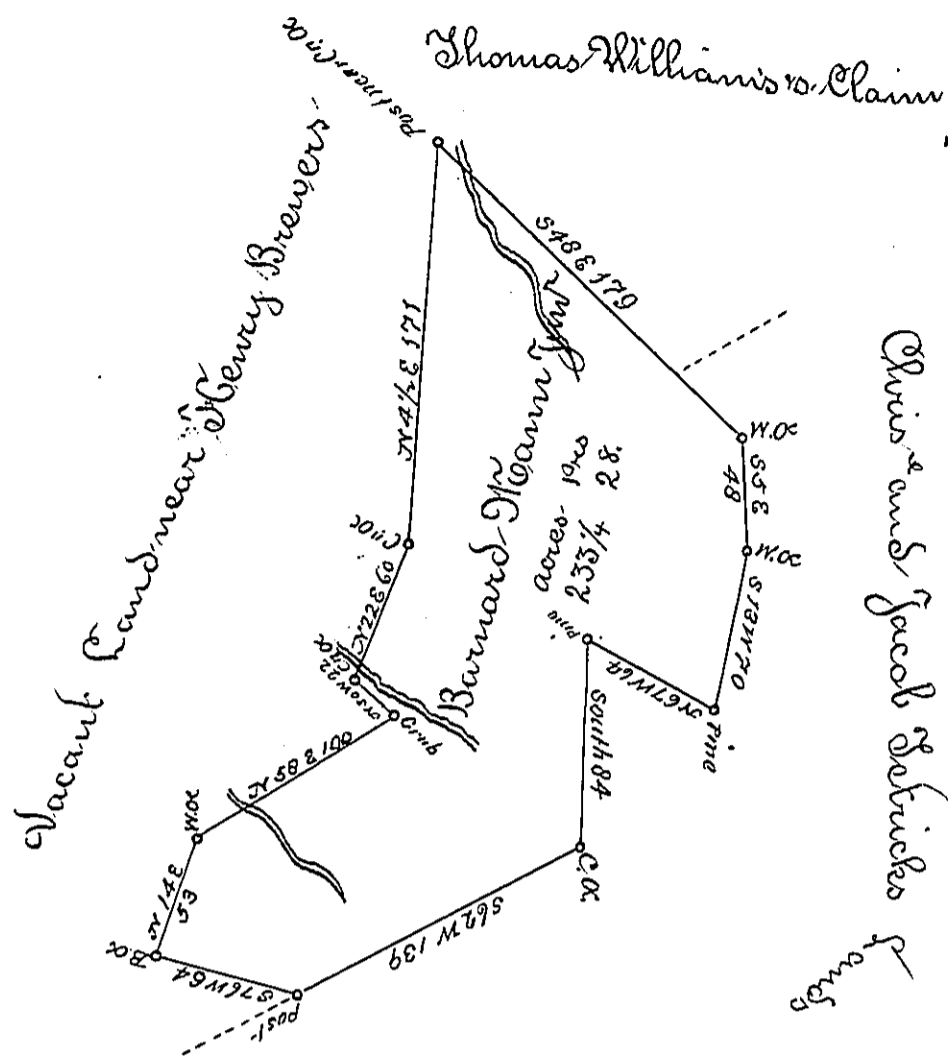 Thomas Williams's Claim
Post near Ch.Ok
Vacant Land near Henry Brewers
Chris.r and Jacob Tetricks Lands
Barnard Hann Junr
acres Prs
233¼ 28.
S48E179
W.O.
S5E
48
W.O.
S13W70
Pine
N67W64
Pine
South 84
C.O.
S62W139
Post
S76W64
B.O.
N14E
53
W.O.
N58E100
N50W22
N22E60
N4½E171